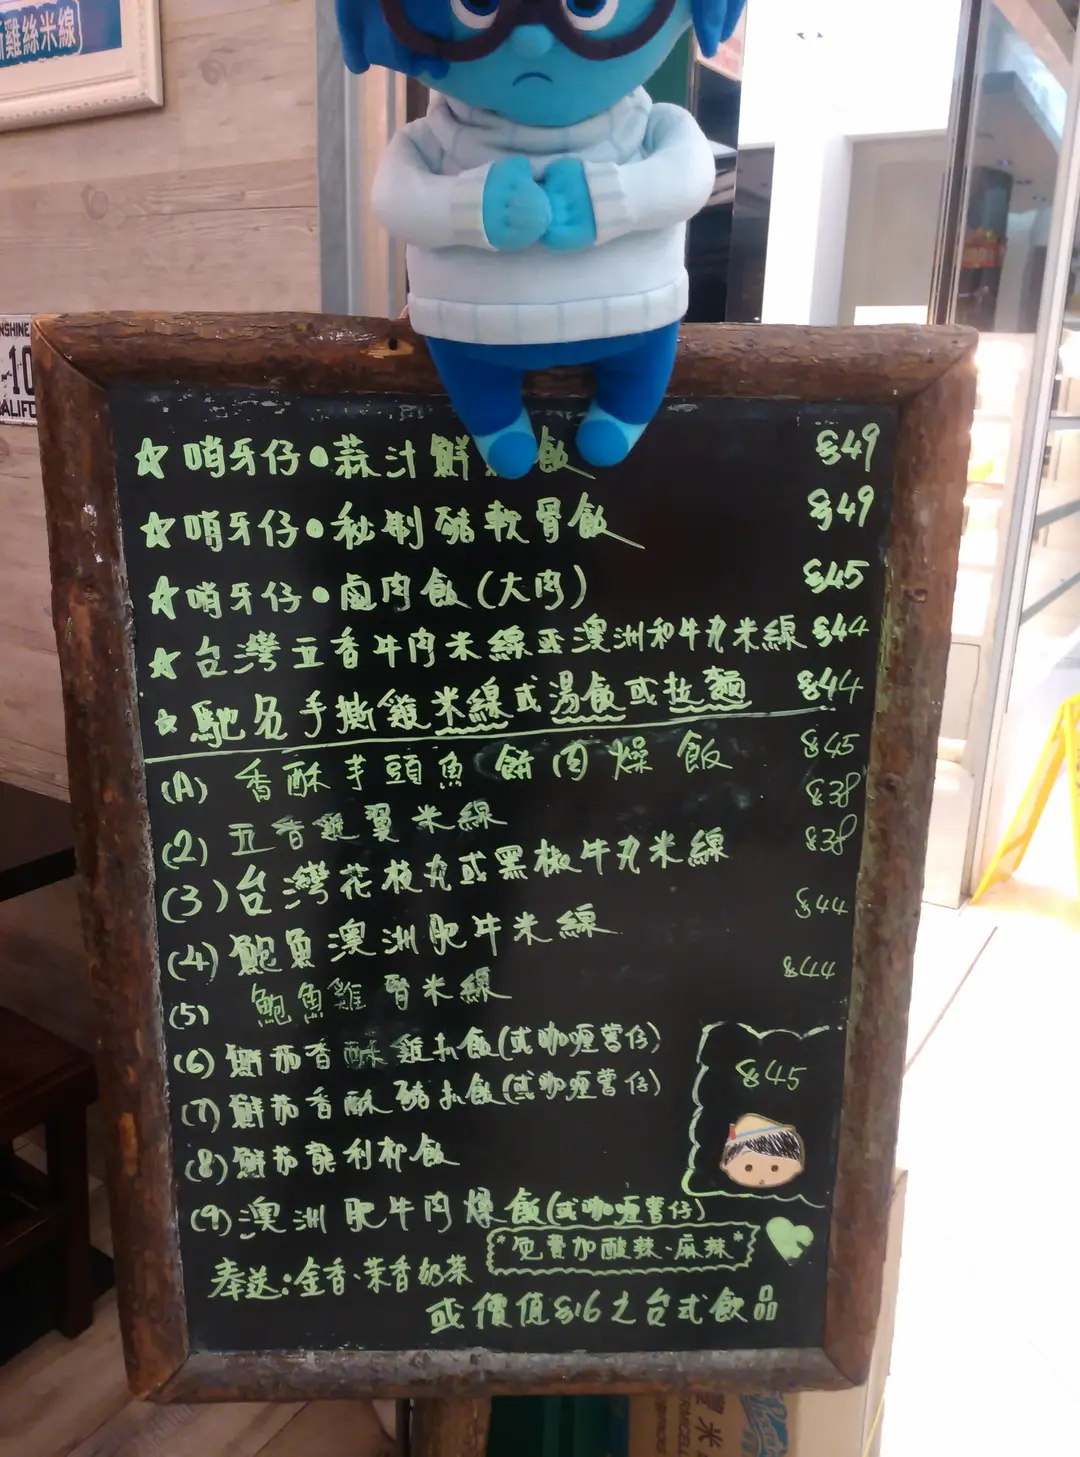 雞絲米線
NSHINE
10
ALIFO
☆ 哨牙仔•蒜汁鮮 飯 $49
☆ 哨牙仔•秘制豬軟骨飯 $49
☆ 哨牙仔•鹵肉飯(大肉) $45
☆ 台灣五香牛肉米線或澳洲和牛丸米線 $44
☆ 馳名手撕雞米線或湯飯或拉麵 $44
(A) 香酥芋頭魚餅肉燥飯 $45
(2) 五香雞翼米線 $38
(3) 台灣花枝丸或黑椒牛丸米線 $38
(4) 鮑魚澳洲肥牛米線 $44
(5) 鮑魚雞腎米線 $44
(6) 鮮茄香酥雞扒飯(或咖喱薯仔)
(7) 鮮茄香酥豬扒飯(或咖喱薯仔)
$45
(8) 鮮茄龍利柳飯
(9) 澳洲肥牛肉燥飯(或咖喱薯仔)
"免費加酸辣、麻辣"
奉送:金香、茉香奶茶
或價值$16之台式飲品